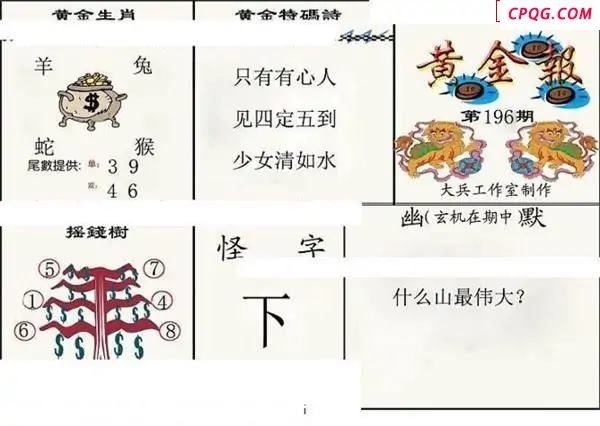 CPQG.COM
黄金生肖
羊 兔
蛇 猴
尾數提供: 单: 3 9
双: 4 6
黄金特碼詩
只有有心人
见四定五到
少女清如水
黄金報
第196期
大兵工作室制作
摇錢樹
⑤ ⑦
① ④
⑥ ⑧
怪 字
下
幽(玄机在期中)默
什么山最伟大?
i